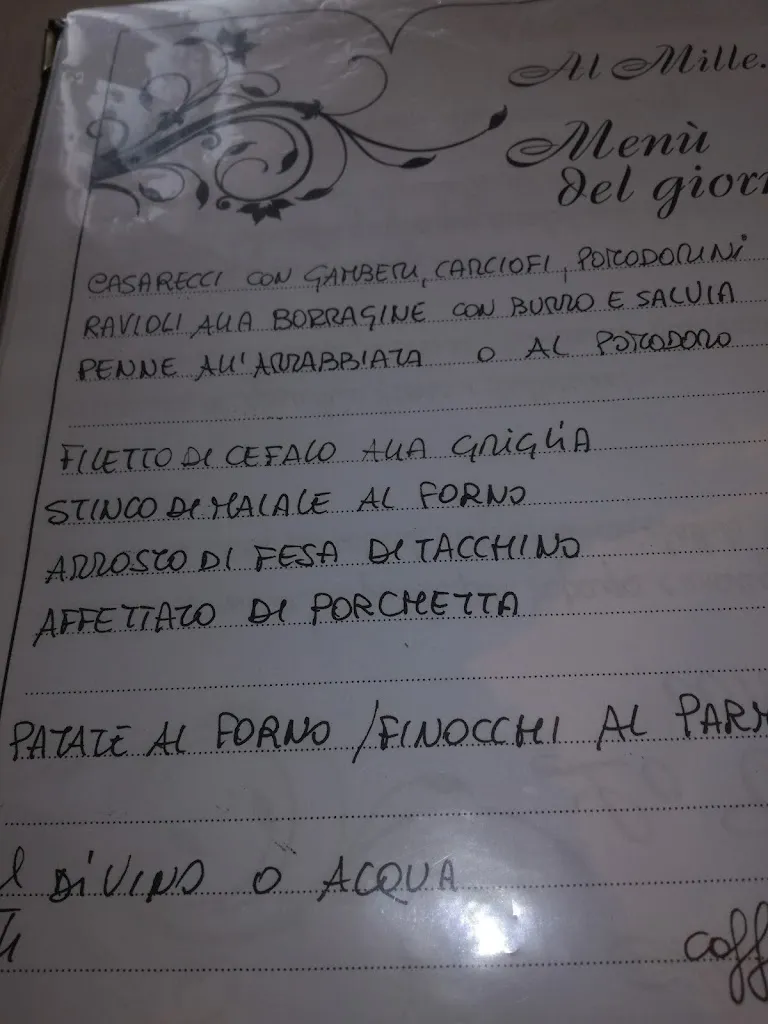 Al Mille.
Menù
del gior
CASARECCI CON GAMBERI, CARCIOFI, POMODORINI
RAVIOLI ALLA BORRAGINE CON BURRO E SALVIA
PENNE ALL'ARRABBIATA O AL POMODORO
FILETTO DI CEFALO ALLA GRIGLIA
STINCO DI MAIALE AL FORNO
ARROSTO DI FESA DI TACCHINO
AFFETTATO DI PORCHETTA
PATATE AL FORNO / FINOCCHI AL PARM
DI VINO O ACQUA
coff